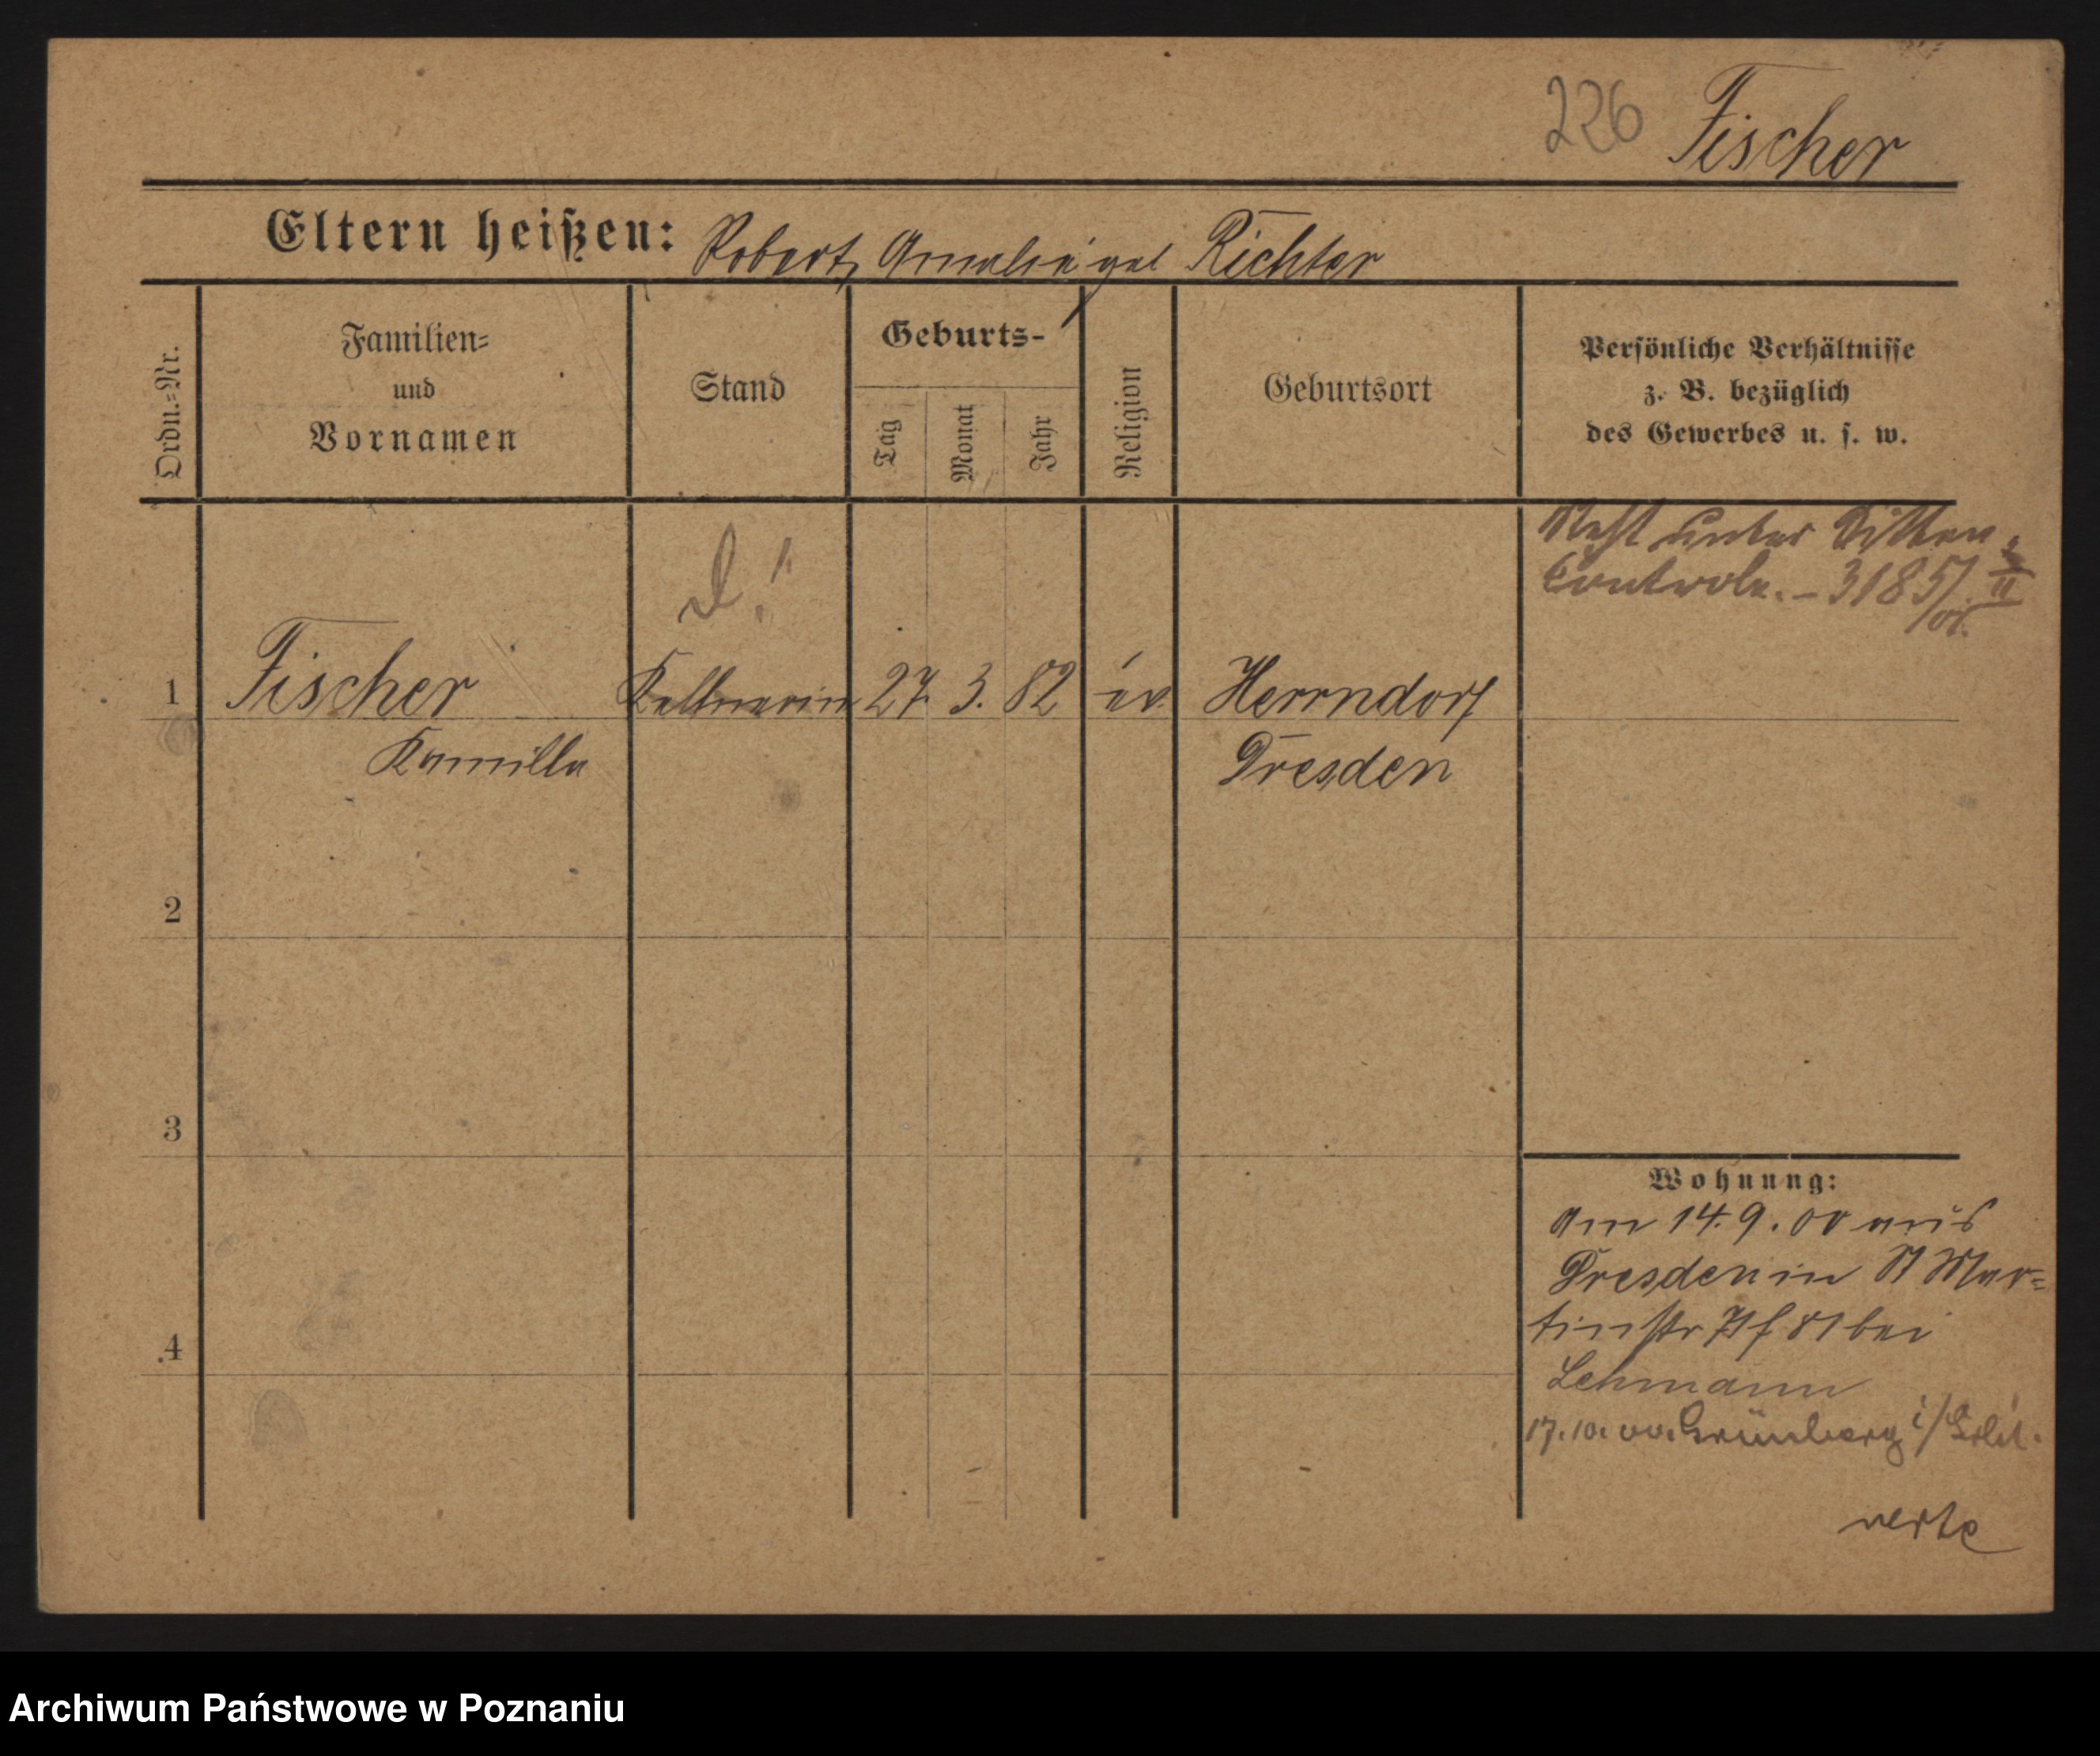 226 Fischer
Eltern heißen: Robert, Amalie geb Richter
Ordn.-Nr.
Familien-
und
Vornamen
Stand
Geburts-
Tag
Monat
Jahr
Religion
Geburtsort
Persönliche Verhältnisse
z. B. bezüglich
des Gewerbes u. s. w.
Steht unter Sitten-
Controle. – 3185/01. II
1 Fischer Kellnerin 27. 3. 82 ev. Herrndorf
Kamilla Dresden
2
3
4
Wohnung:
Am 14.9.00 aus
Dresden in St Mar-
tinstr bei
Lehmann
17.10.00. Grünberg i/Schl.
verte
Archiwum Państwowe w Poznaniu